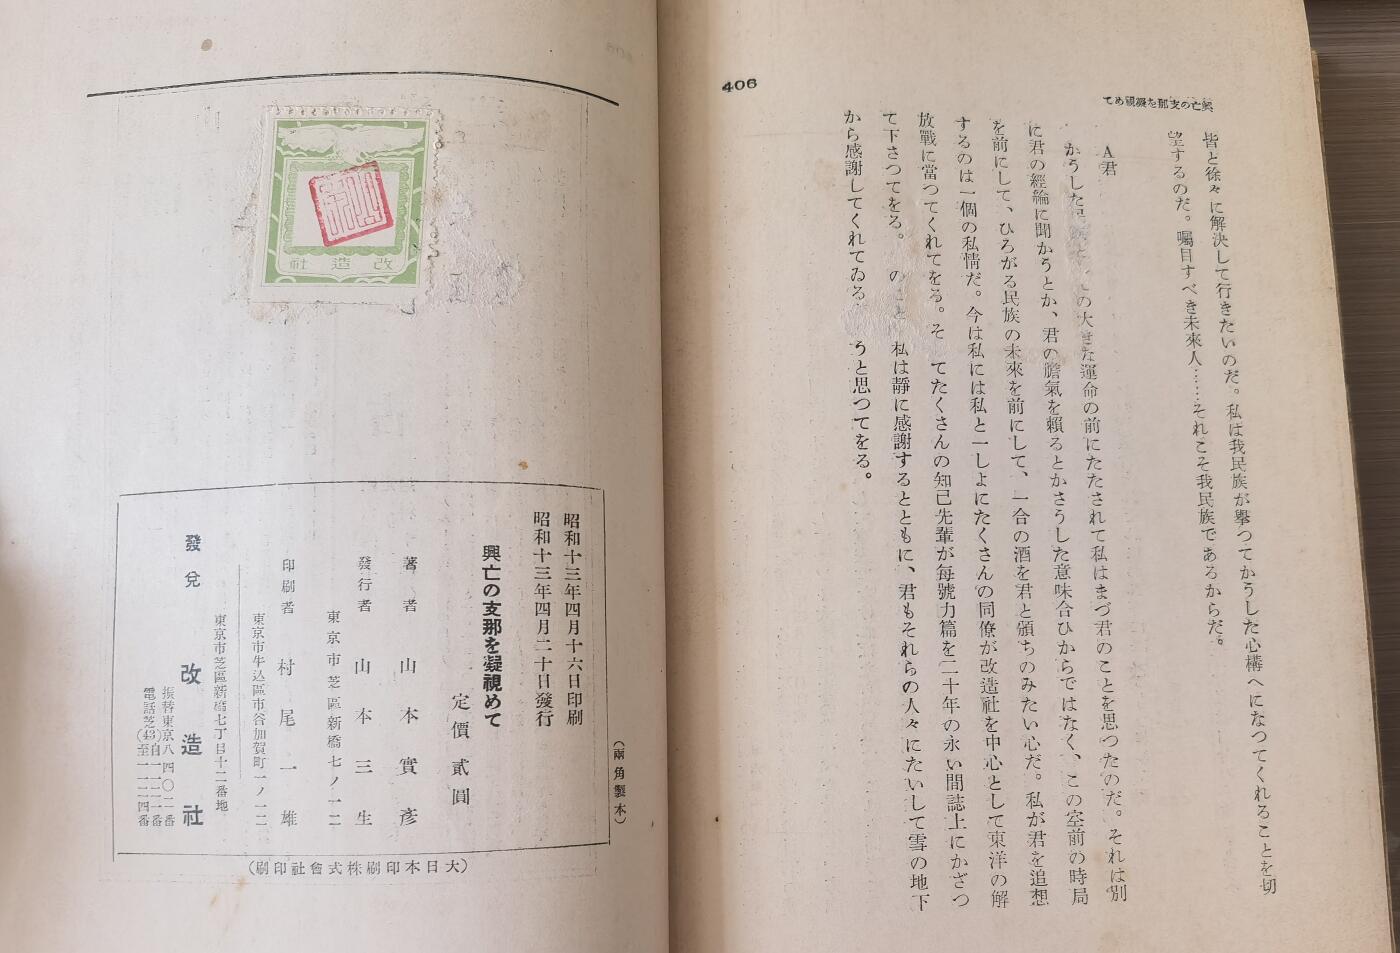 興亡の支那を凝視めて
406
皆と徐々に解決して行きたいのだ。私は我民族が擧つてかうした心構へになつてくれることを切
望するのだ。囑目すべき未來人……それこそ我民族であるからだ。
A君
かうした の大きな運命の前にたたされて私はまづ君のことを思つたのだ。それは別
に君の經綸に聞かうとか、君の膽氣を賴るとかさうした意味合ひからではなく、この空前の時局
を前にして、ひろがる民族の未來を前にして、一合の酒を君と頒ちのみたい心だ。私が君を追想
するのは一個の私情だ。今は私には私と一しよにたくさんの同僚が改造社を中心として東洋の解
放戰に當つてくれてをる。そ てたくさんの知己先輩が每號力篇を二十年の永い間誌上にかざつ
て下さつてをる。 のこと 私は靜に感謝するとともに、君もそれらの人々にたいして雪の地下
から感謝してくれてゐる うと思つてをる。
改造社
昭和十三年四月十六日印刷
昭和十三年四月二十日發行
(兩角製本)
興亡の支那を凝視めて
定價貳圓
著者 山本實彥
發行者 山本三生
東京市芝區新橋七ノ一二
印刷者 村尾一雄
東京市牛込區市谷加賀町一ノ一二
東京市芝區新橋七丁目十二番地
發兌 改造社
振替東京八四〇二番
電話芝(43)自一一二一番至一一二四番
(大日本印刷株式會社印刷)